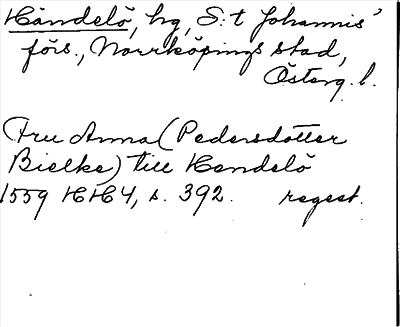 Händelö, hg, S:t Johannis'
förs., Norrköpings stad,
Österg. l.
Fru Anna (Pedersdotter
Bielke) till Hendelö
1559 HH4, s. 392. regest.